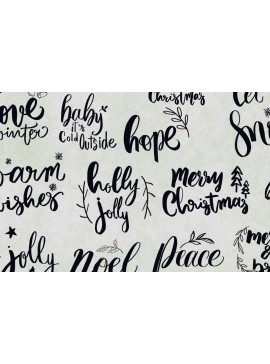 love
winter
baby
it's
Cold
Outside
hope
Christmas
let
warm
wishes
holly
jolly
Merry
Christmas
jolly
Noel
Peace